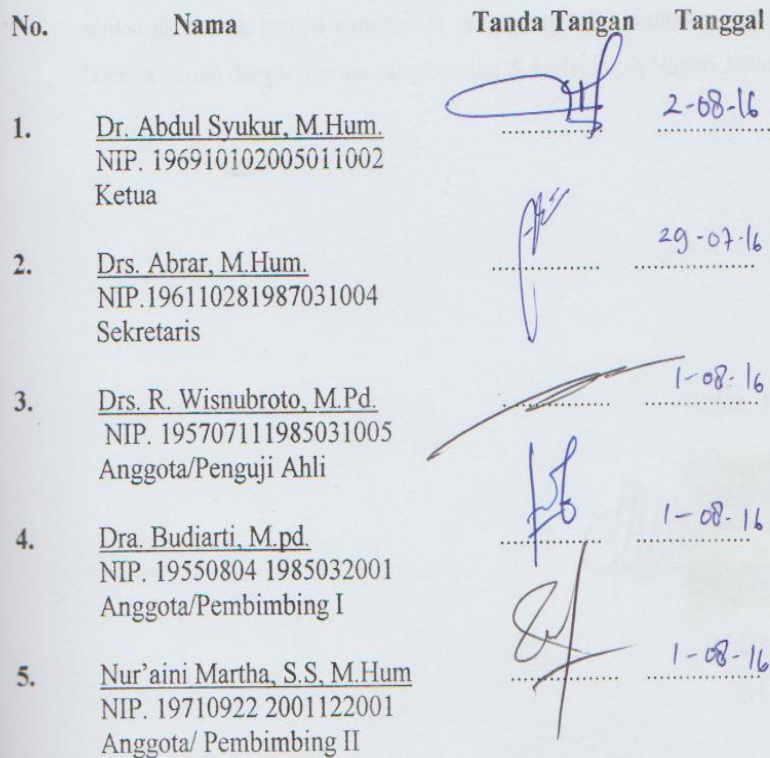 No. Nama Tanda Tangan Tanggal
1. Dr. Abdul Syukur, M.Hum. .............. 2-08-16
NIP. 196910102005011002
Ketua
2. Drs. Abrar, M.Hum. .............. 29-07-16
NIP.196110281987031004
Sekretaris
3. Drs. R. Wisnubroto, M.Pd. .............. 1-08-16
NIP. 195707111985031005
Anggota/Penguji Ahli
4. Dra. Budiarti, M.pd. .............. 1-08-16
NIP. 19550804 1985032001
Anggota/Pembimbing I
5. Nur'aini Martha, S.S, M.Hum .............. 1-08-16
NIP. 19710922 2001122001
Anggota/ Pembimbing II